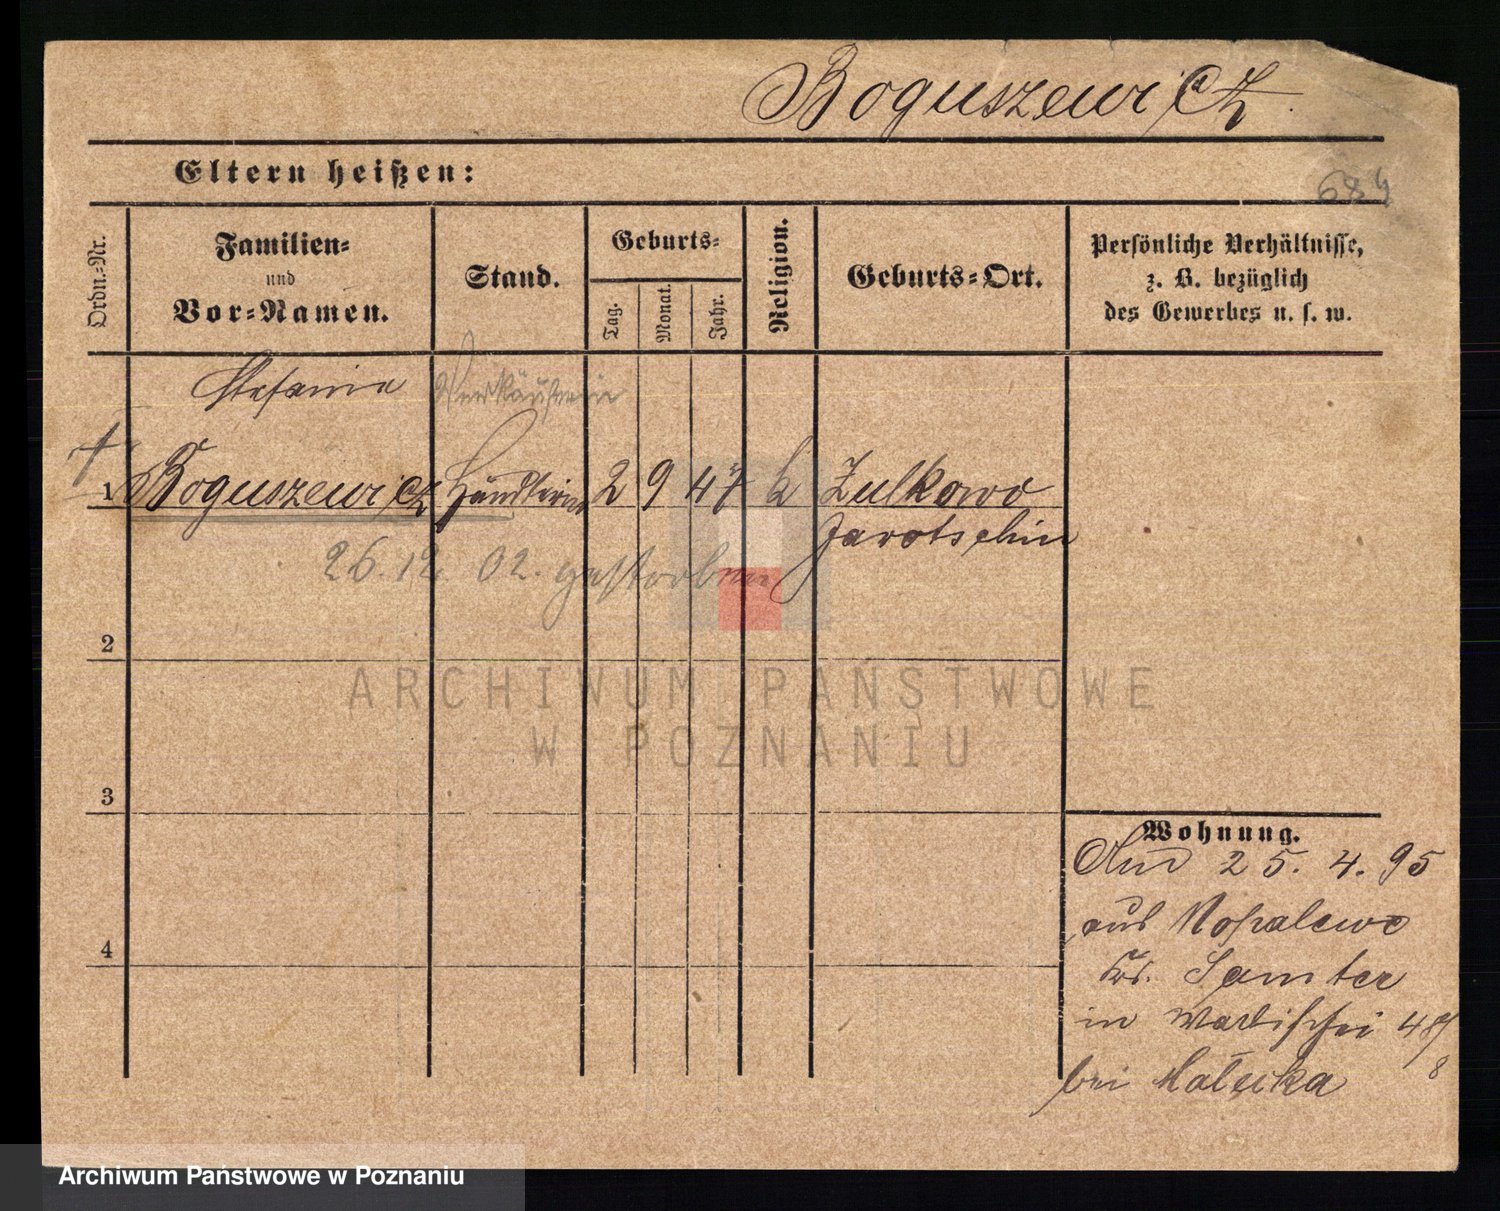 Boguszewicz.
Eltern heißen:
684
Ordn.-Nr.
Familien-
und
Vor-Namen.
Stand.
Geburts-
Tag.
Monat.
Jahr.
Religion.
Geburts-Ort.
Persönliche Verhältnisse,
z. B. bezüglich
des Gewerbes u. s. w.
Stefania Verkäuferin
1 Boguszewicz Händlerin 2 9 47 k Zulkowo
Jarotschin
26. 12. 02. gestorben
2
3
4
Wohnung.
25. 4. 95
aus
Krs. Samter
in Wallischei 48/
8
bei Małecka
ARCHIWUM PAŃSTWOWE
W POZNANIU
Archiwum Państwowe w Poznaniu